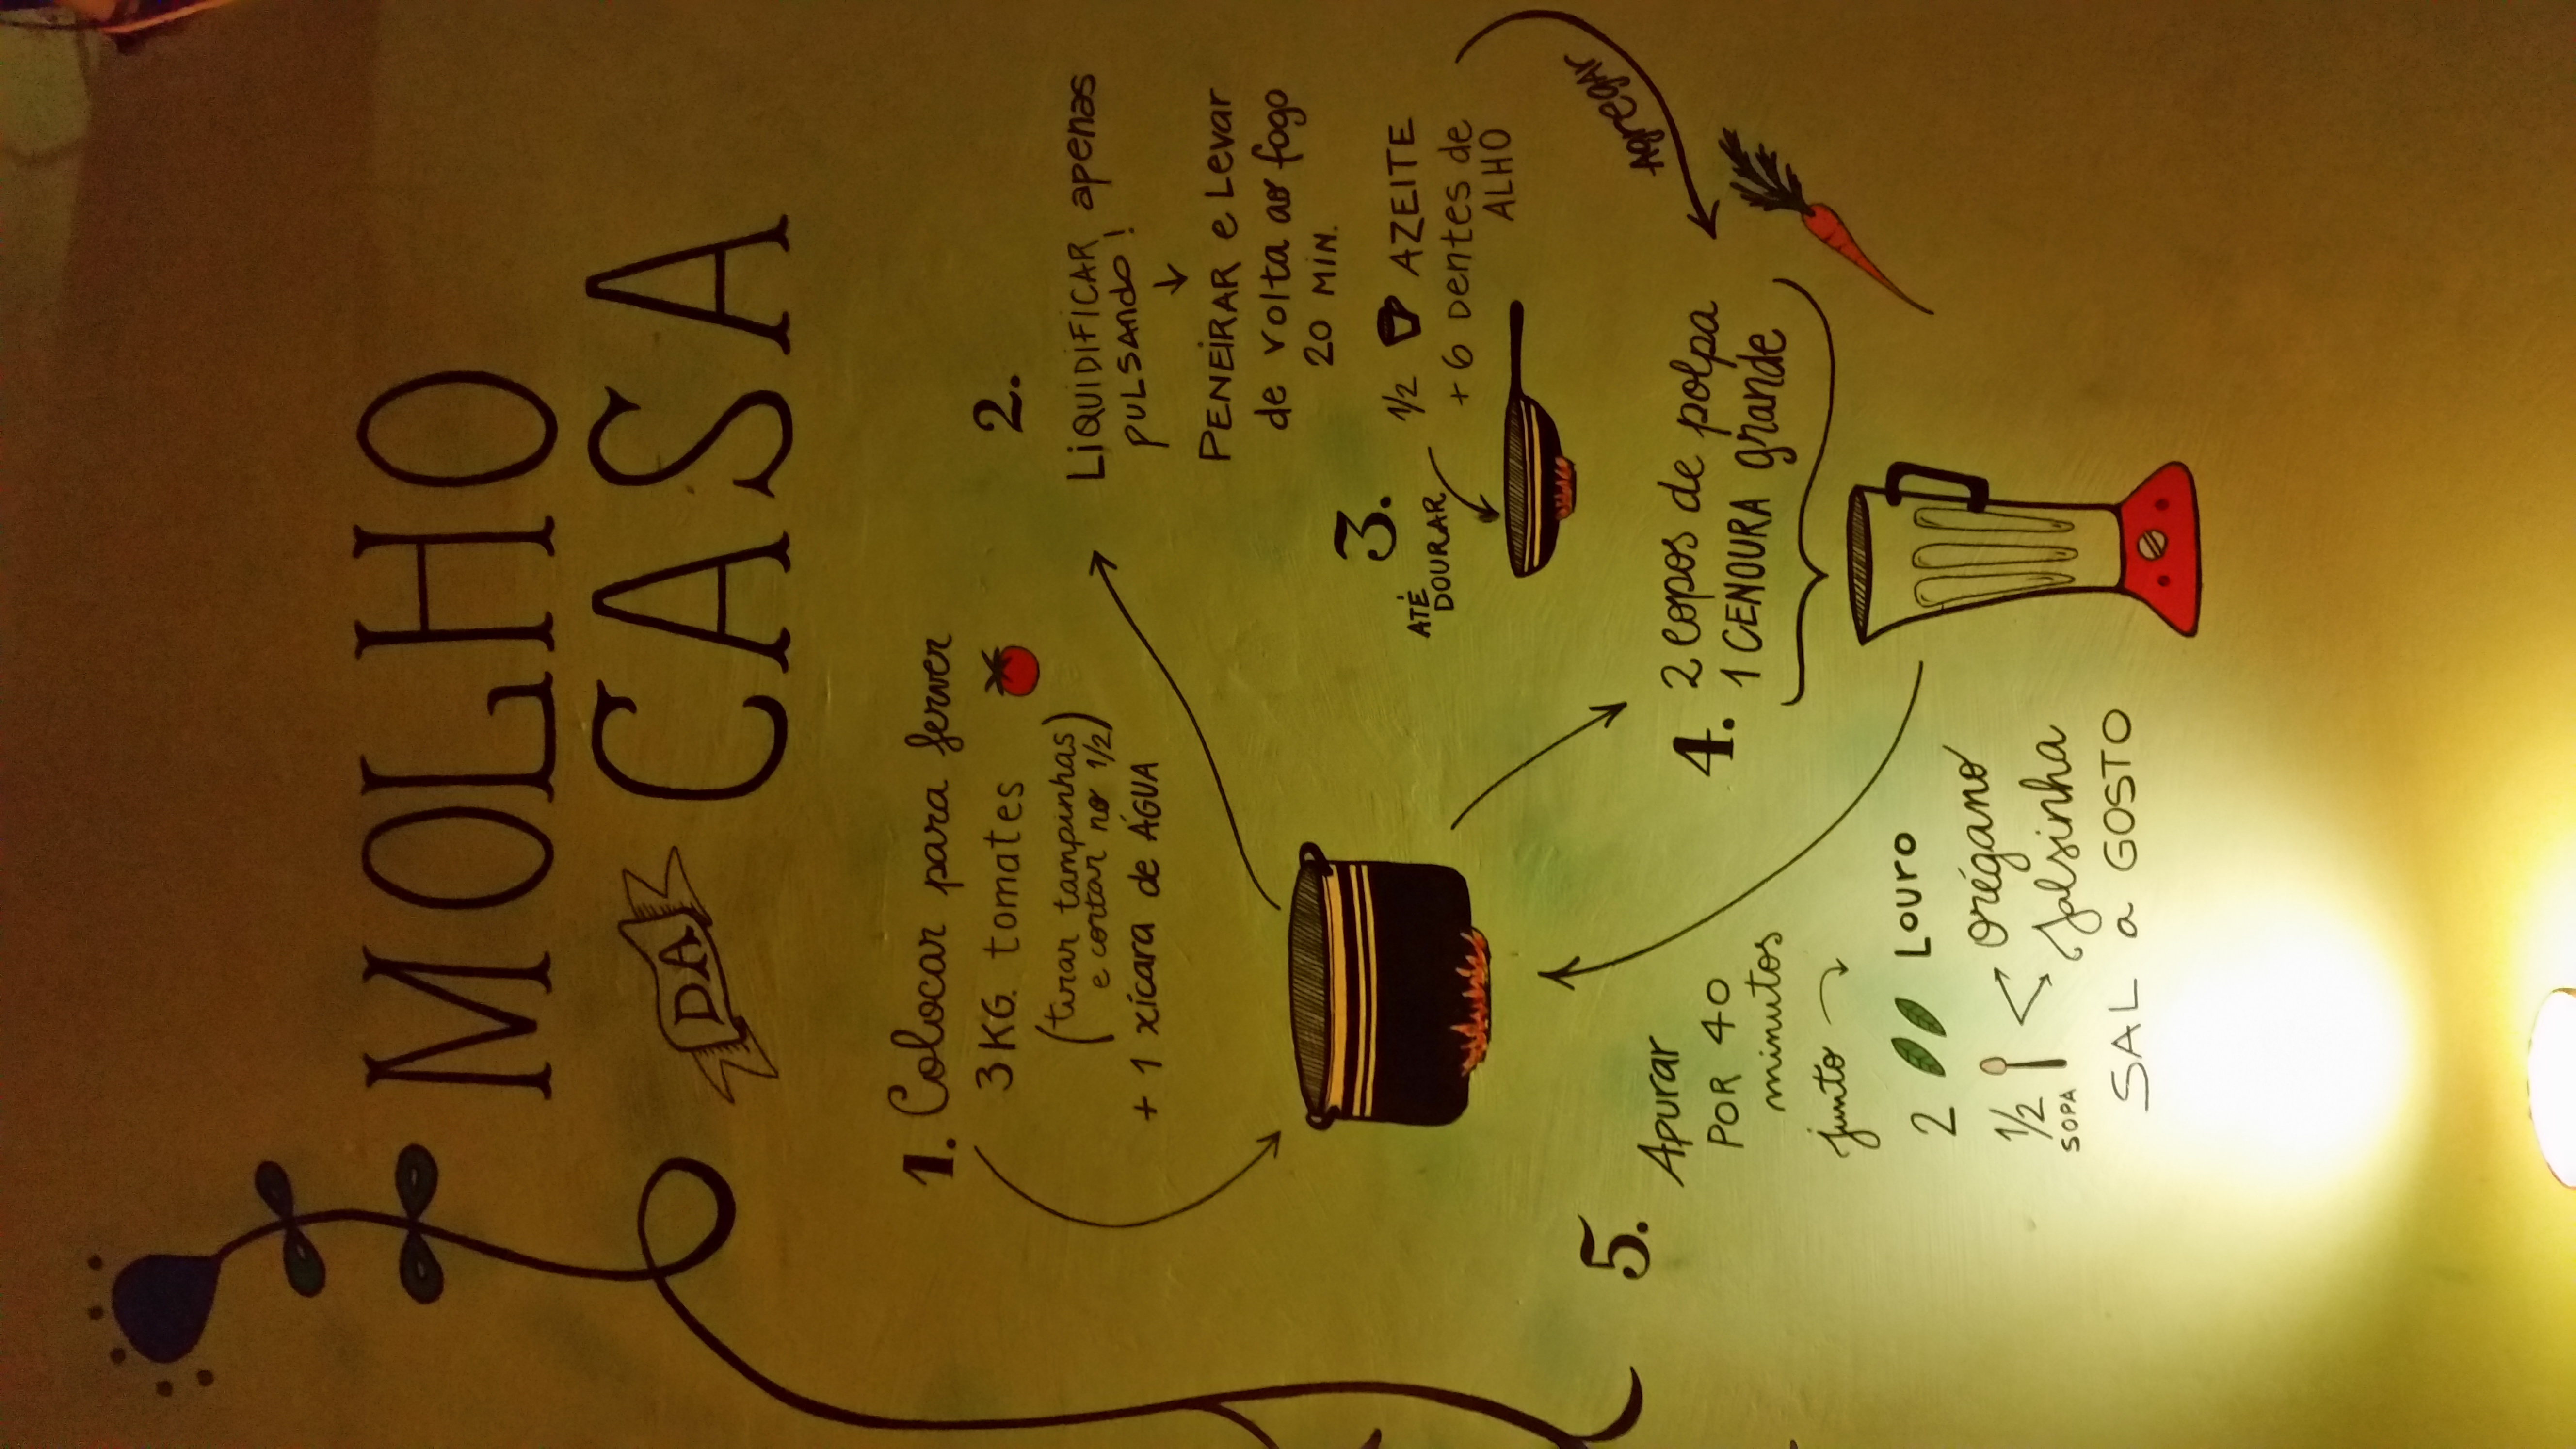 MOLHO
DA CASA
1. Colocar para ferver
3KG. tomates
(tirar tampinhas
e cortar no 1/2)
+ 1 xícara de ÁGUA
2.
LIQUIDIFICAR apenas
PULSAndo!
PENEIRAR e Levar
de volta ao fogo
20 MIN.
3.
ATÉ
DOURAR
1/2 AZEITE
+ 6 Dentes de
ALHO
AgregAr
4. 2 copos de polpa
1 CENOURA grande
5.
Apurar
POR 40
minutos
junto
2 Louro
1/2
SOPA
orégano
salsinha
SAL a GOSTO